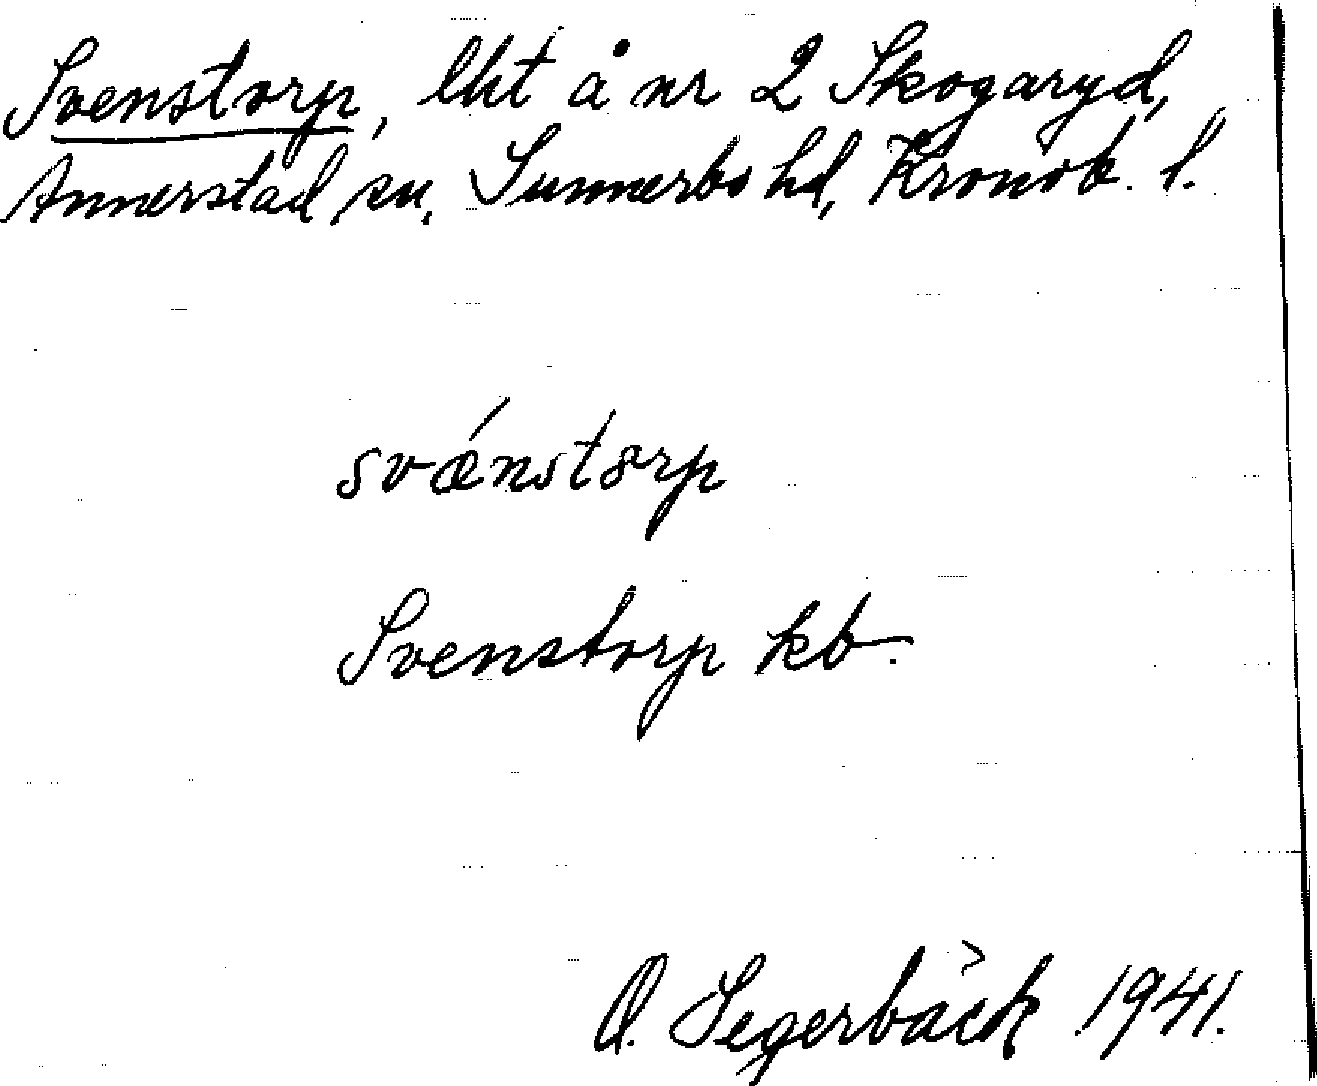 Svenstorp, lht å nr 2 Skogaryd,
Annerstad sn, Sunnerbo hd, Kronob. l.
svǽnstɵrp
Svenstorp kb.
O. Segerbäck 1941.